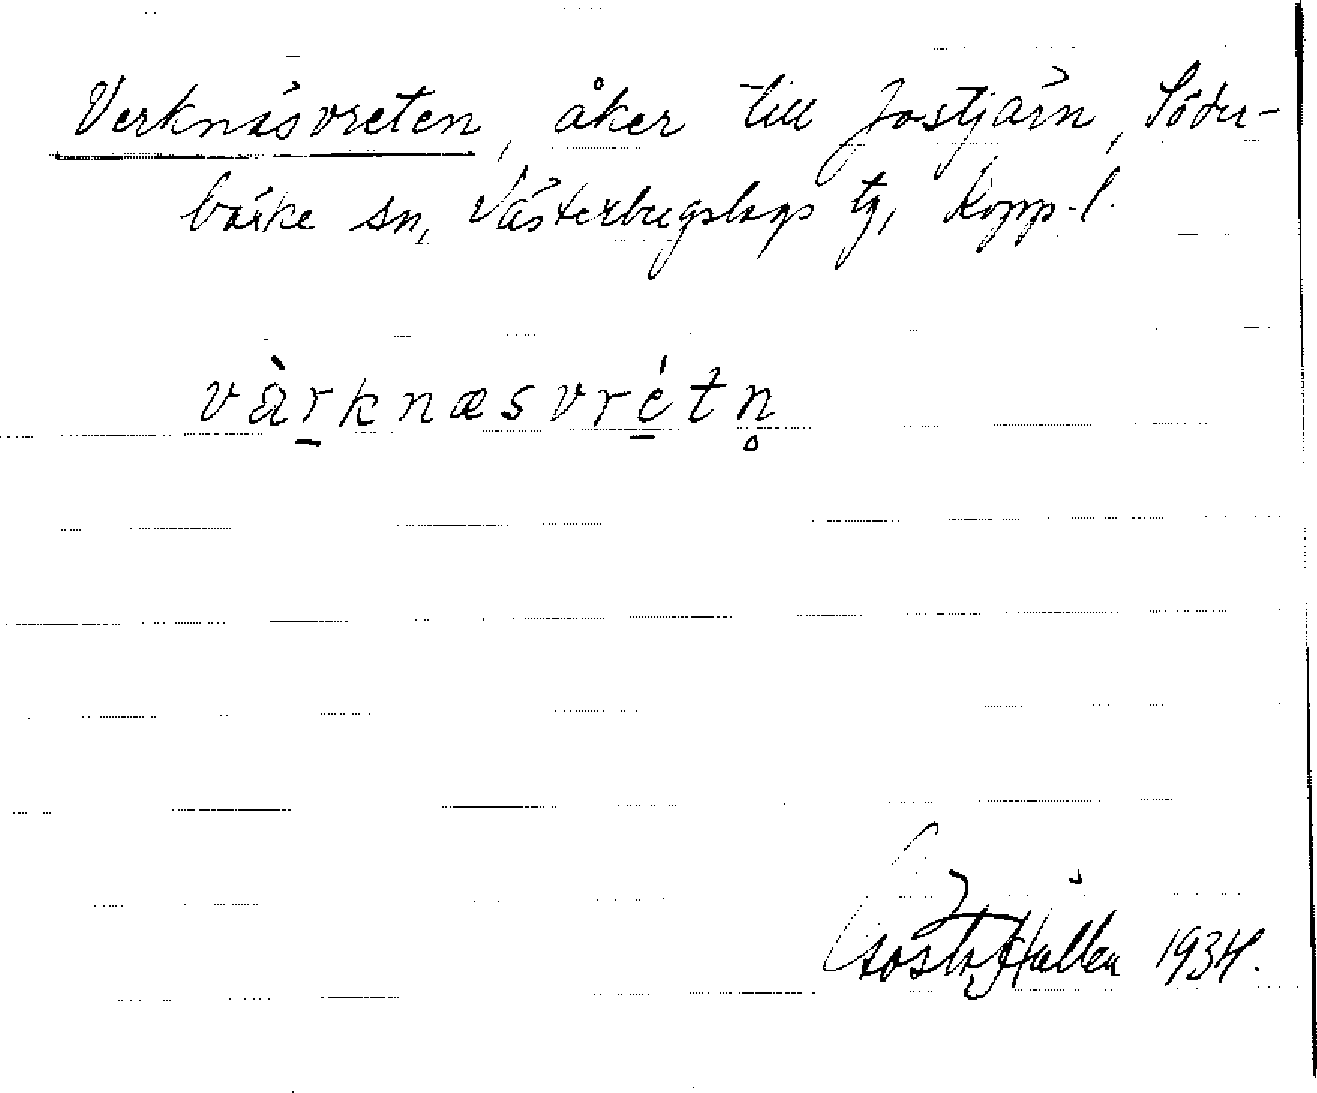 Verknäsvreten, åker till Jostjärn, Söder-
bärke sn, Västerbergslags tg, Kopp. l.
vàrknæsvrétn̥
Gösta Hallén 1934.